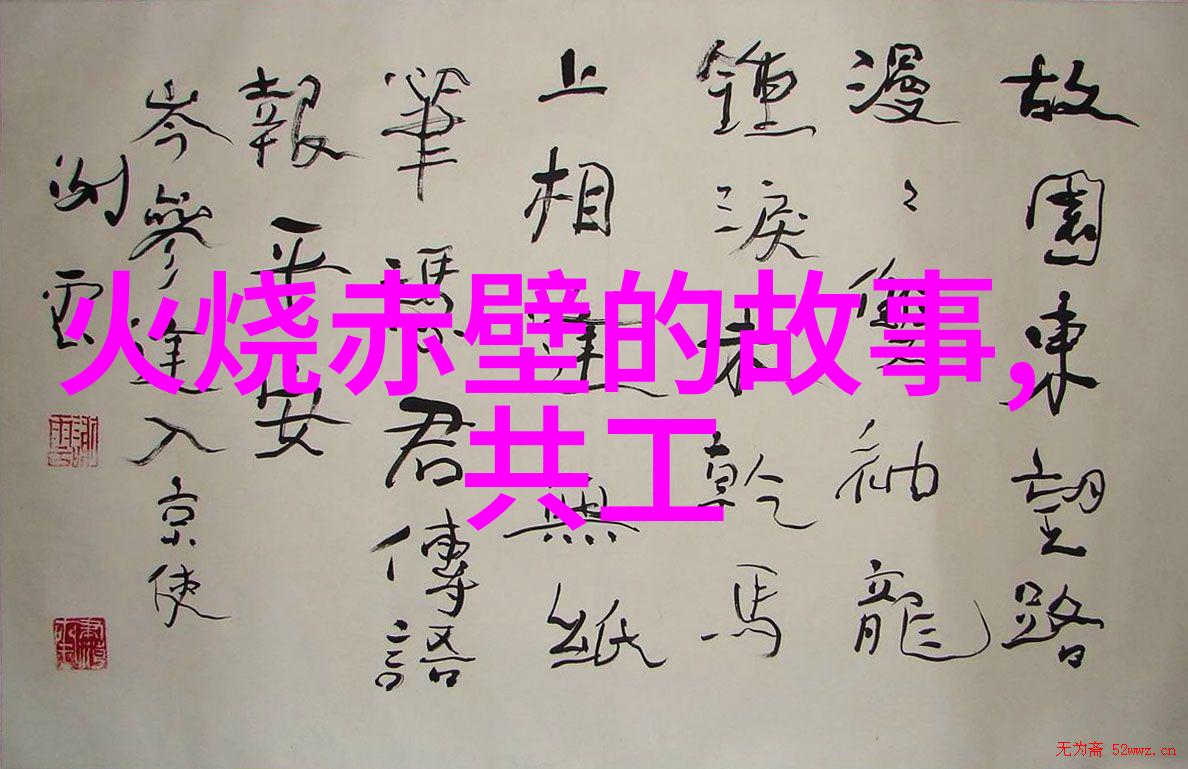 故園東望路
漫〻雙袖龍
鍾淚未乾馬
上相逢無紙
筆憑君傳語
報平安
岑參逢入京使
火烧赤壁的故事,
共工
无为斋 52wwz.cn